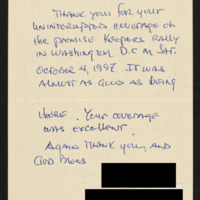 THANK YOU FOR YOUR
UNINTERRUPTED COVERAGE OF
THE PROMISE KEEPERS RALLY
IN WASHINGTON D.C ON SAT.
OCTOBER 4, 1997. IT WAS
ALMOST AS GOOD AS BEING
THERE. YOUR COVERAGE
WAS EXCELLENT.
AGAIN THANK YOU, AND
GOD BLESS